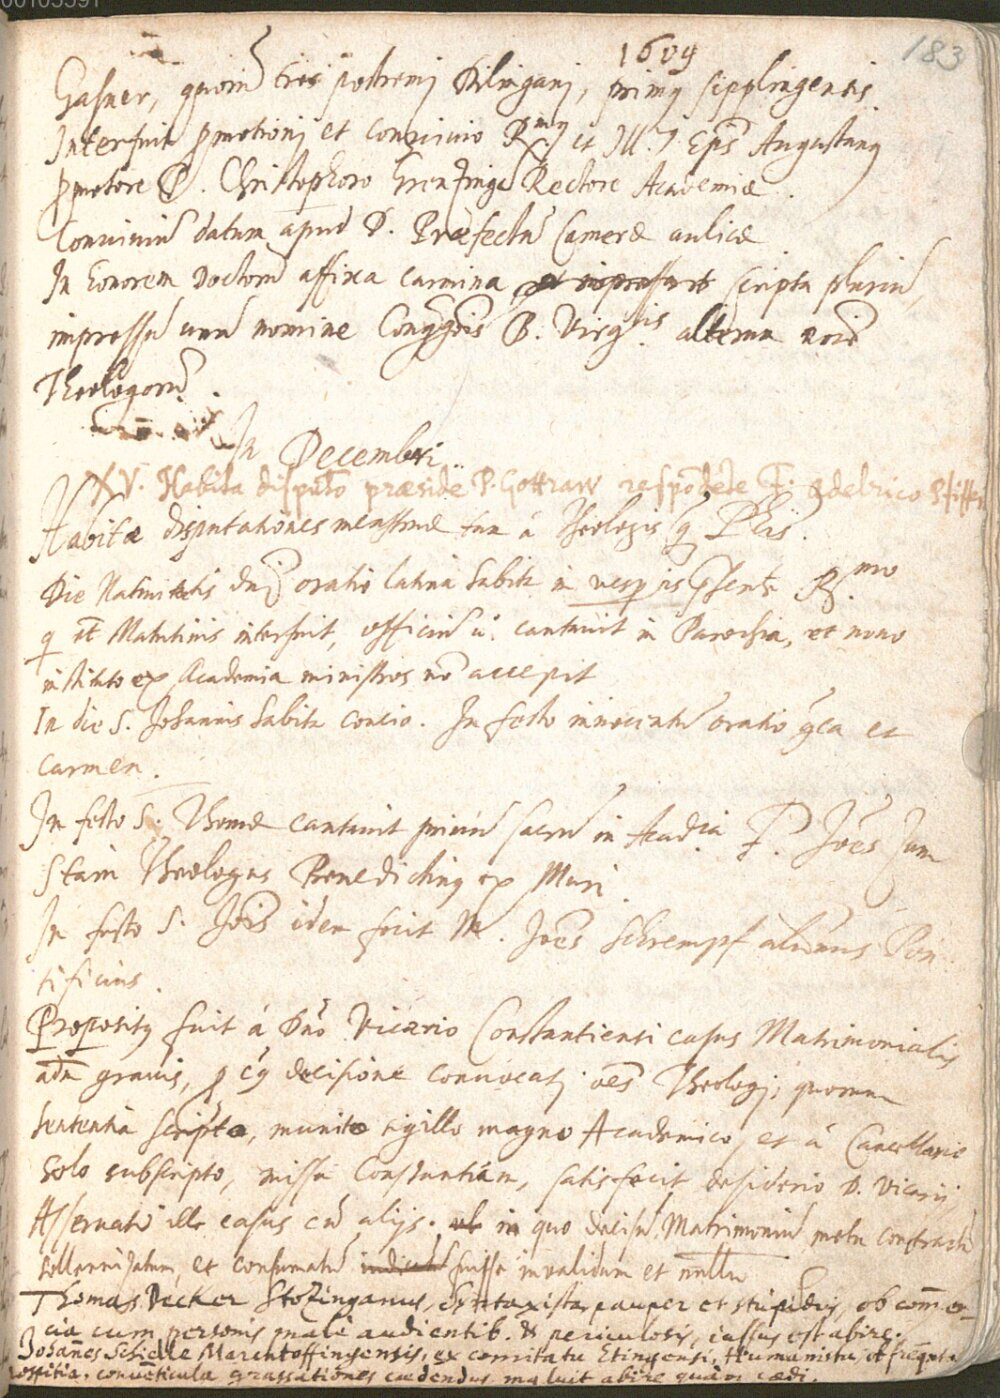 00103391
1609
183
Gasner, quorū tres postremi Dilingani, primꝰ sipplingensis.
Interfuit pmotioni et convivio Rmꝰ et Ill. Epis Augustanꝰ
pmotore D. Christophoro Grenzing Rectore Academiæ.
Conviviū datum apud D. Præfectū Cameræ aulicæ
In honorem Doctorū affixa carmina scripta plurimū,
impressū unū nomine Cong̃ois B. Virgis. alterum noīe
Theologorū.
In Decembri
XV. Habita disputõ præside P. Gottraw respõdete F. Adelrico Stiffer
Habitæ disputationes menstruæ tum a Theologis q̃ Phis.
Die Nativitatis dnī oratio latina habita in vesperis psente Rmo.
q et Matutinis interfuit, officiū ū. cantavit in Parochia, et novo
instituto ex Academia ministros nõ accepit
In die S. Johannis habita concio. In festo innocentū oratio gca et
carmen.
In festo S. Thomæ cantavit primū sacrū in Acad:ia F. Joēs Jum
Stain Theologus Benedictinꝰ ex Muri.
In festo S. Jois idem fecit M. Joēs Schrempf alumnus Pon
tificius.
Propositꝰ fuit á Dno Vicario Constantiensi casus Matrimonialis
adm gravis, p cꝰ decisione convocati oēs Theologi, quorum
sententia scripta, munita sigillo magno Academico, et á Cancellario
solo subscripto, missa Constantiam, satisfecit desiderio D. Vicarij
Asservatur ille casus cū alijs. in quo decisū Matrimoniū metu contractū
sollennizatum, et consumatū fuisse invalidum et nullū
Thomas Decker Stozinganus, Syntaxista, pauper et stupidus, ob commer-
cia cum personis malè audientib. & periculosis, iussus est abire.
Johannes Schielle Marchtoffingensis, ex comitatu Etingensi, Humanista, ob frequēt.
hospitia, conventicula grassationes cædendus maluit abire quam cædi.